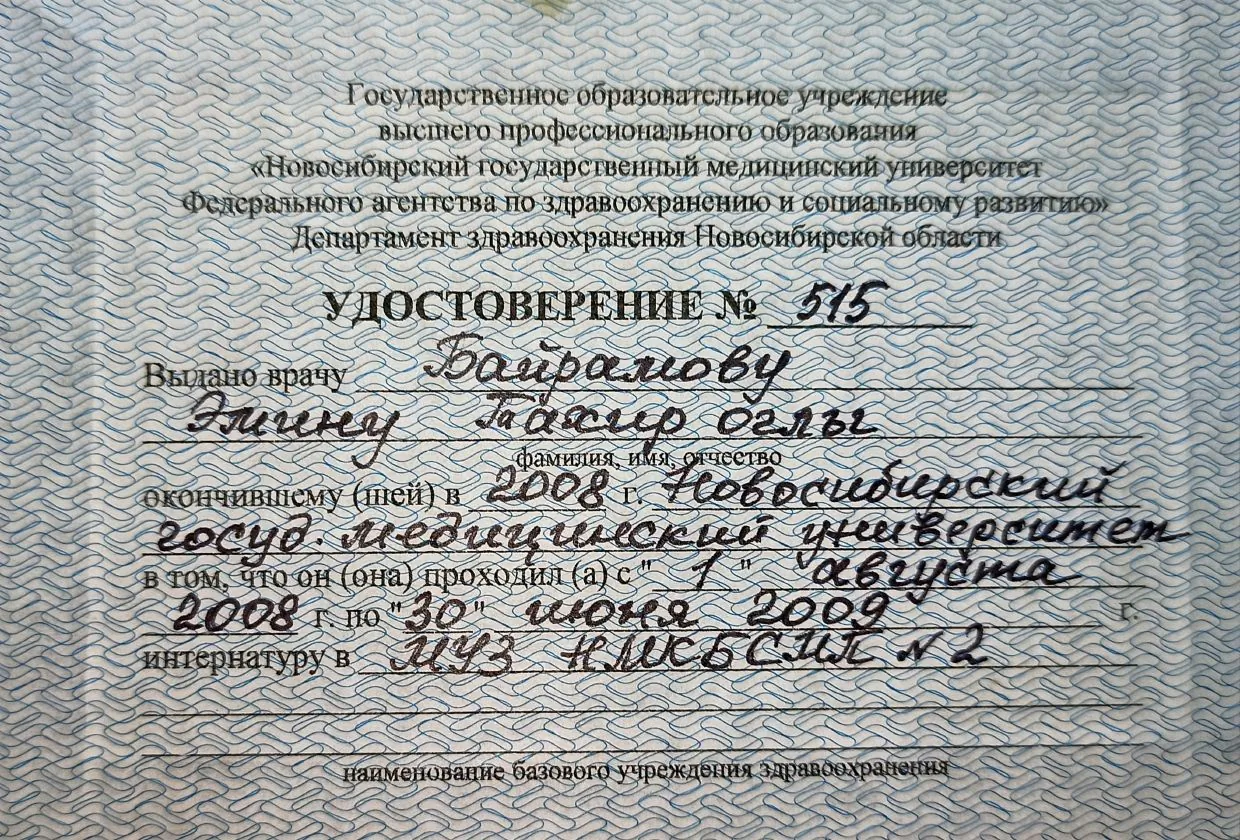 Государственное образовательное учреждение
высшего профессионального образования
«Новосибирский государственный медицинский университет
Федерального агентства по здравоохранению и социальному развитию»
Департамент здравоохранения Новосибирской области
УДОСТОВЕРЕНИЕ № 515
Выдано врачу Байрамову
Эмину Тахир оглы
фамилия, имя, отчество
окончившему (шей) в 2008 г. Новосибирский
госуд. медицинский университет
в том, что он (она) проходил (а) с " 1 " августа
2008 г. по "30" июня 2009 г.
интернатуру в МУЗ НМКБСМП № 2
наименование базового учреждения здравоохранения